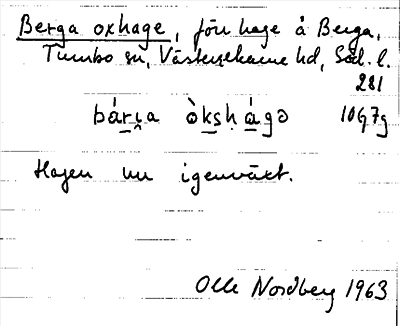 Berga oxhage, förr hage å Berga,
Tumbo sn, Västerrekarne hd, Söd. l.
281
bári̯a òkshágə 10G7g
Hagen nu igenväxt.
Olle Nordberg 1963